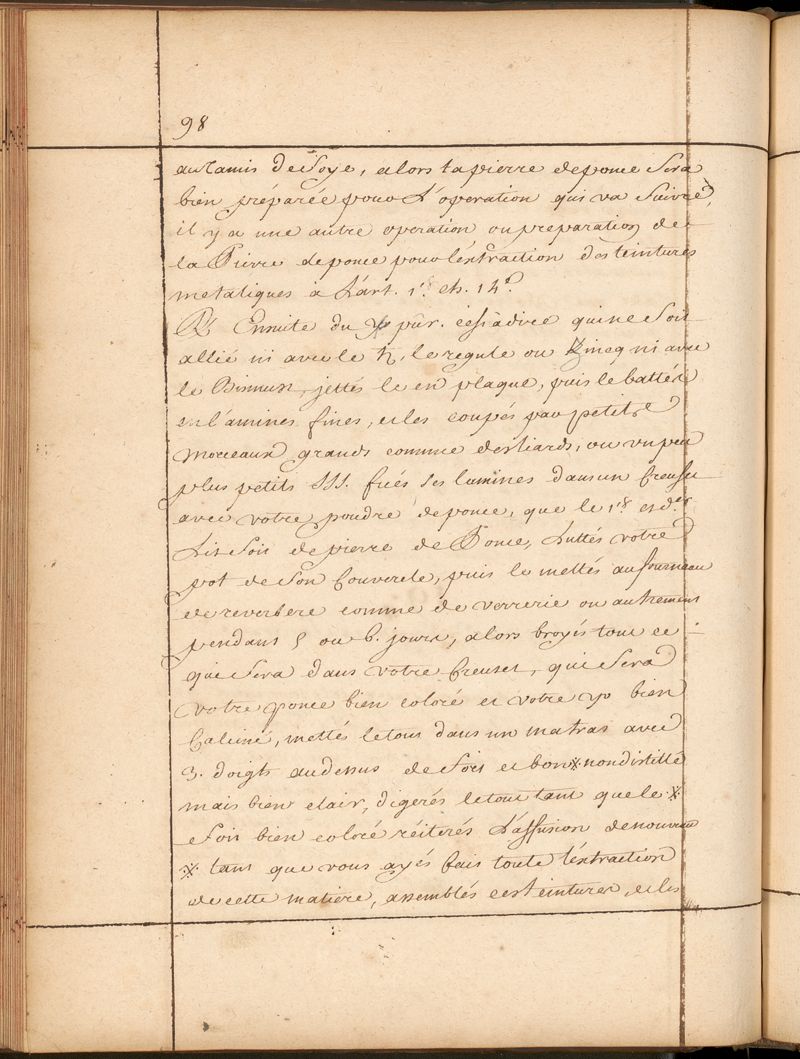 98
au Tamis de Soye, alors ta pierre de ponce Sera
bien préparée pour L'operation qui va Suivre,
il y a une autre operation ou preparation de
la Pierre de ponce pour l'éxtraction des teintures
metaliques à L'art. 1.er ch. 14.e
R/ Ensuite du ♃ pur. cest à dire qui ne Soit
allié ni avec le ♄, le regule ou Zincq ni avec
le Bismuth, jettés le en plaque, puis le battés
en l'amines fines, et les coupés par petits
Morceaux grands comme des liards, ou un peu
plus petits SSS. fiés Ses lamines dans un Creuset
avec votre poudre de ponce, que le 1.er et d.er
Lit Soit de pierre de Ponce, Luttés votre
pot de Son Couvercle, puis le mettés au fourneau
de reverbere comme de verrerie ou autrement
pendant 5 ou 6. jours, alors broyés tout ce
que Sera dans votre Creuset, qui Sera
votre ponce bien coloré et votre ♃ bien
Calciné, mettés le tout dans un matras avec
3. doigts au dessus de fort et bon ⁜ non distillé
mais bien clair, digerés le tout tant que le ⁜
Soit bien coloré réiterés L'affusion de nouveau
⁜ tant que vous ayés fait toute l'éxtraction
de cette matiere, assemblés ces teintures, et les